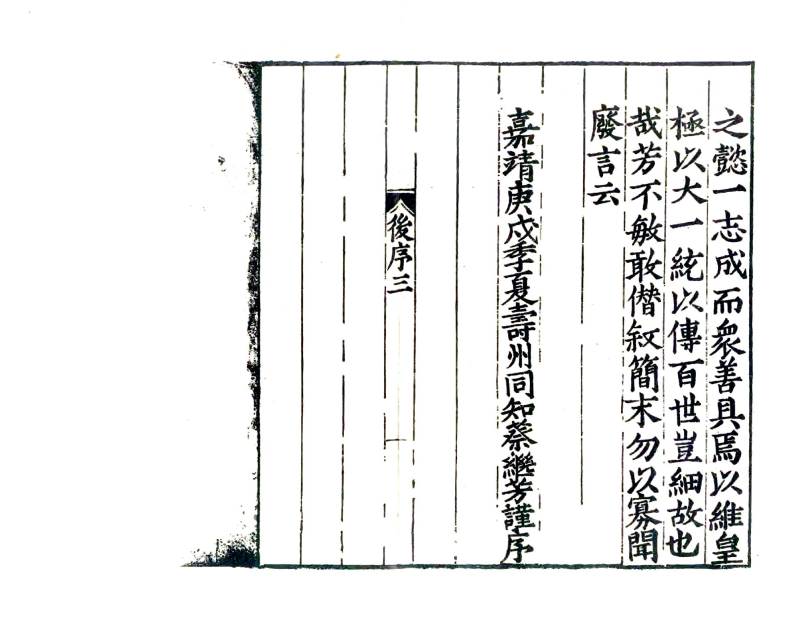 之懿一志成而衆善具焉以維皇
極以大一統以傳百世豈細故也
哉芳不敏敢僣叙簡末勿以寡聞
廢言云
嘉靖庚戍季夏壽州同知蔡繼芳謹序
後序三